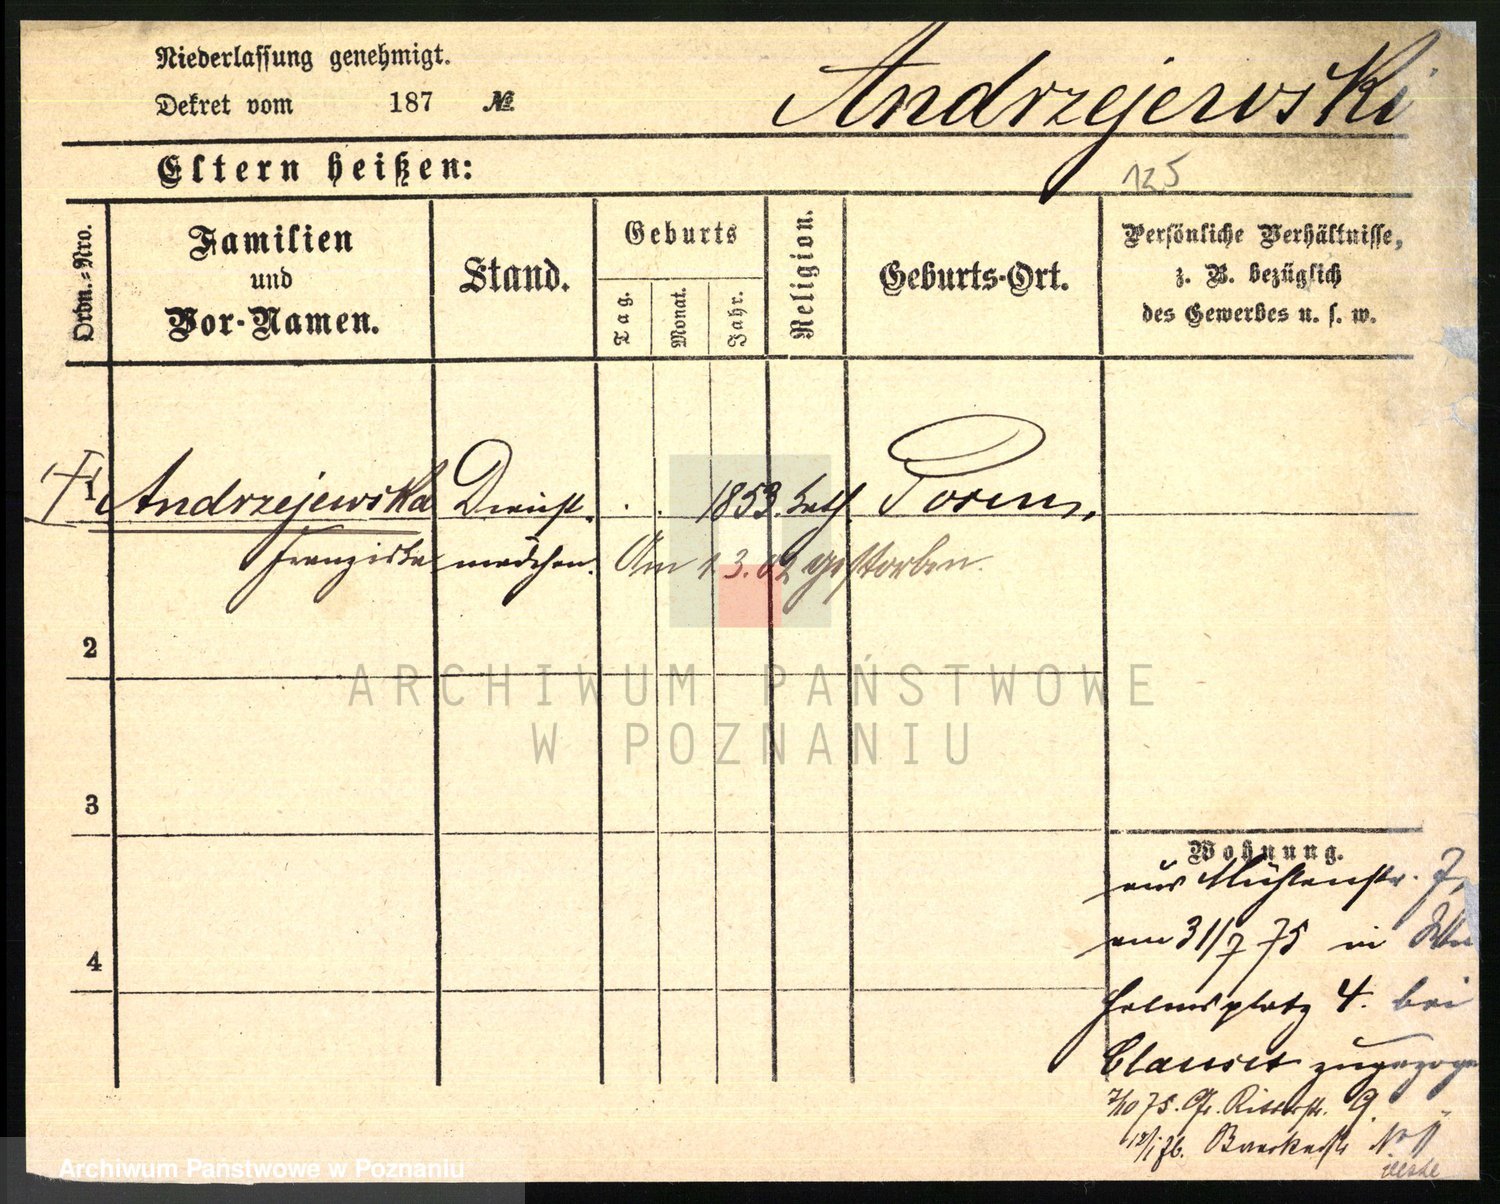 Niederlassung genehmigt.
Dekret vom 187 №
Andrzejewski
Eltern heißen:
125
Ordn.-Nro.
Familien
und
Vor-Namen.
Stand.
Geburts
Tag.
Monat.
Jahr.
Religion.
Geburts-Ort.
Persönliche Verhältnisse,
z. B. bezüglich
des Gewerbes u. s. w.
1 Andrzejewska Dienst- . . 1853. kath. Posen.
Franziska mädchen. Am 1 3. 02 gestorben.
2
ARCHIWUM PAŃSTWOWE
W POZNANIU
3
Wohnung.
aus Mühlenstr. 7,
am 31/7 75 in Wil
helmsplatz 4. bei
zugezogen
4
7/10 75. Gr. Ritterstr. 9.
Archiwum Państwowe w Poznaniu